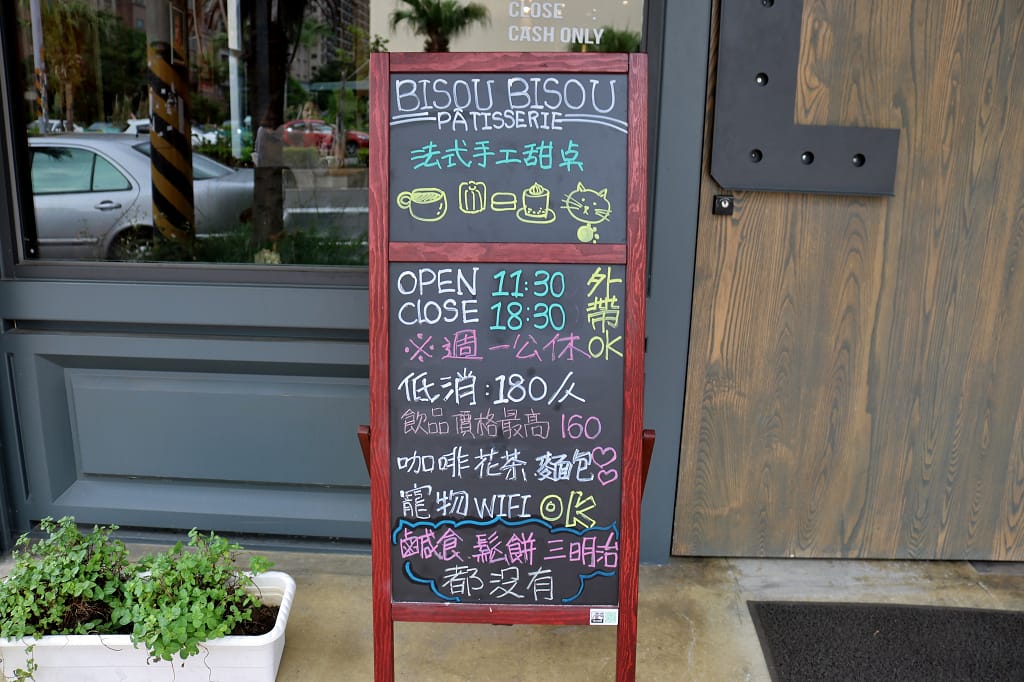 CLOSE :
CASH ONLY
BISOU BISOU
PÂTISSERIE
法式手工甜点
OPEN 11:30
CLOSE 18:30
外帶OK
※週一公休
低消:180/人
飲品價格最高160
咖啡花茶麵包♡♡
寵物WIFI OK
鹹食 鬆餅 三明治
都沒有